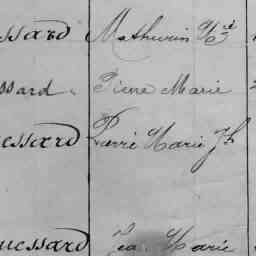 ssard Mathurin
ssard Pierre Marie
essard Pierre Marie Jh
uessard Jea Marie